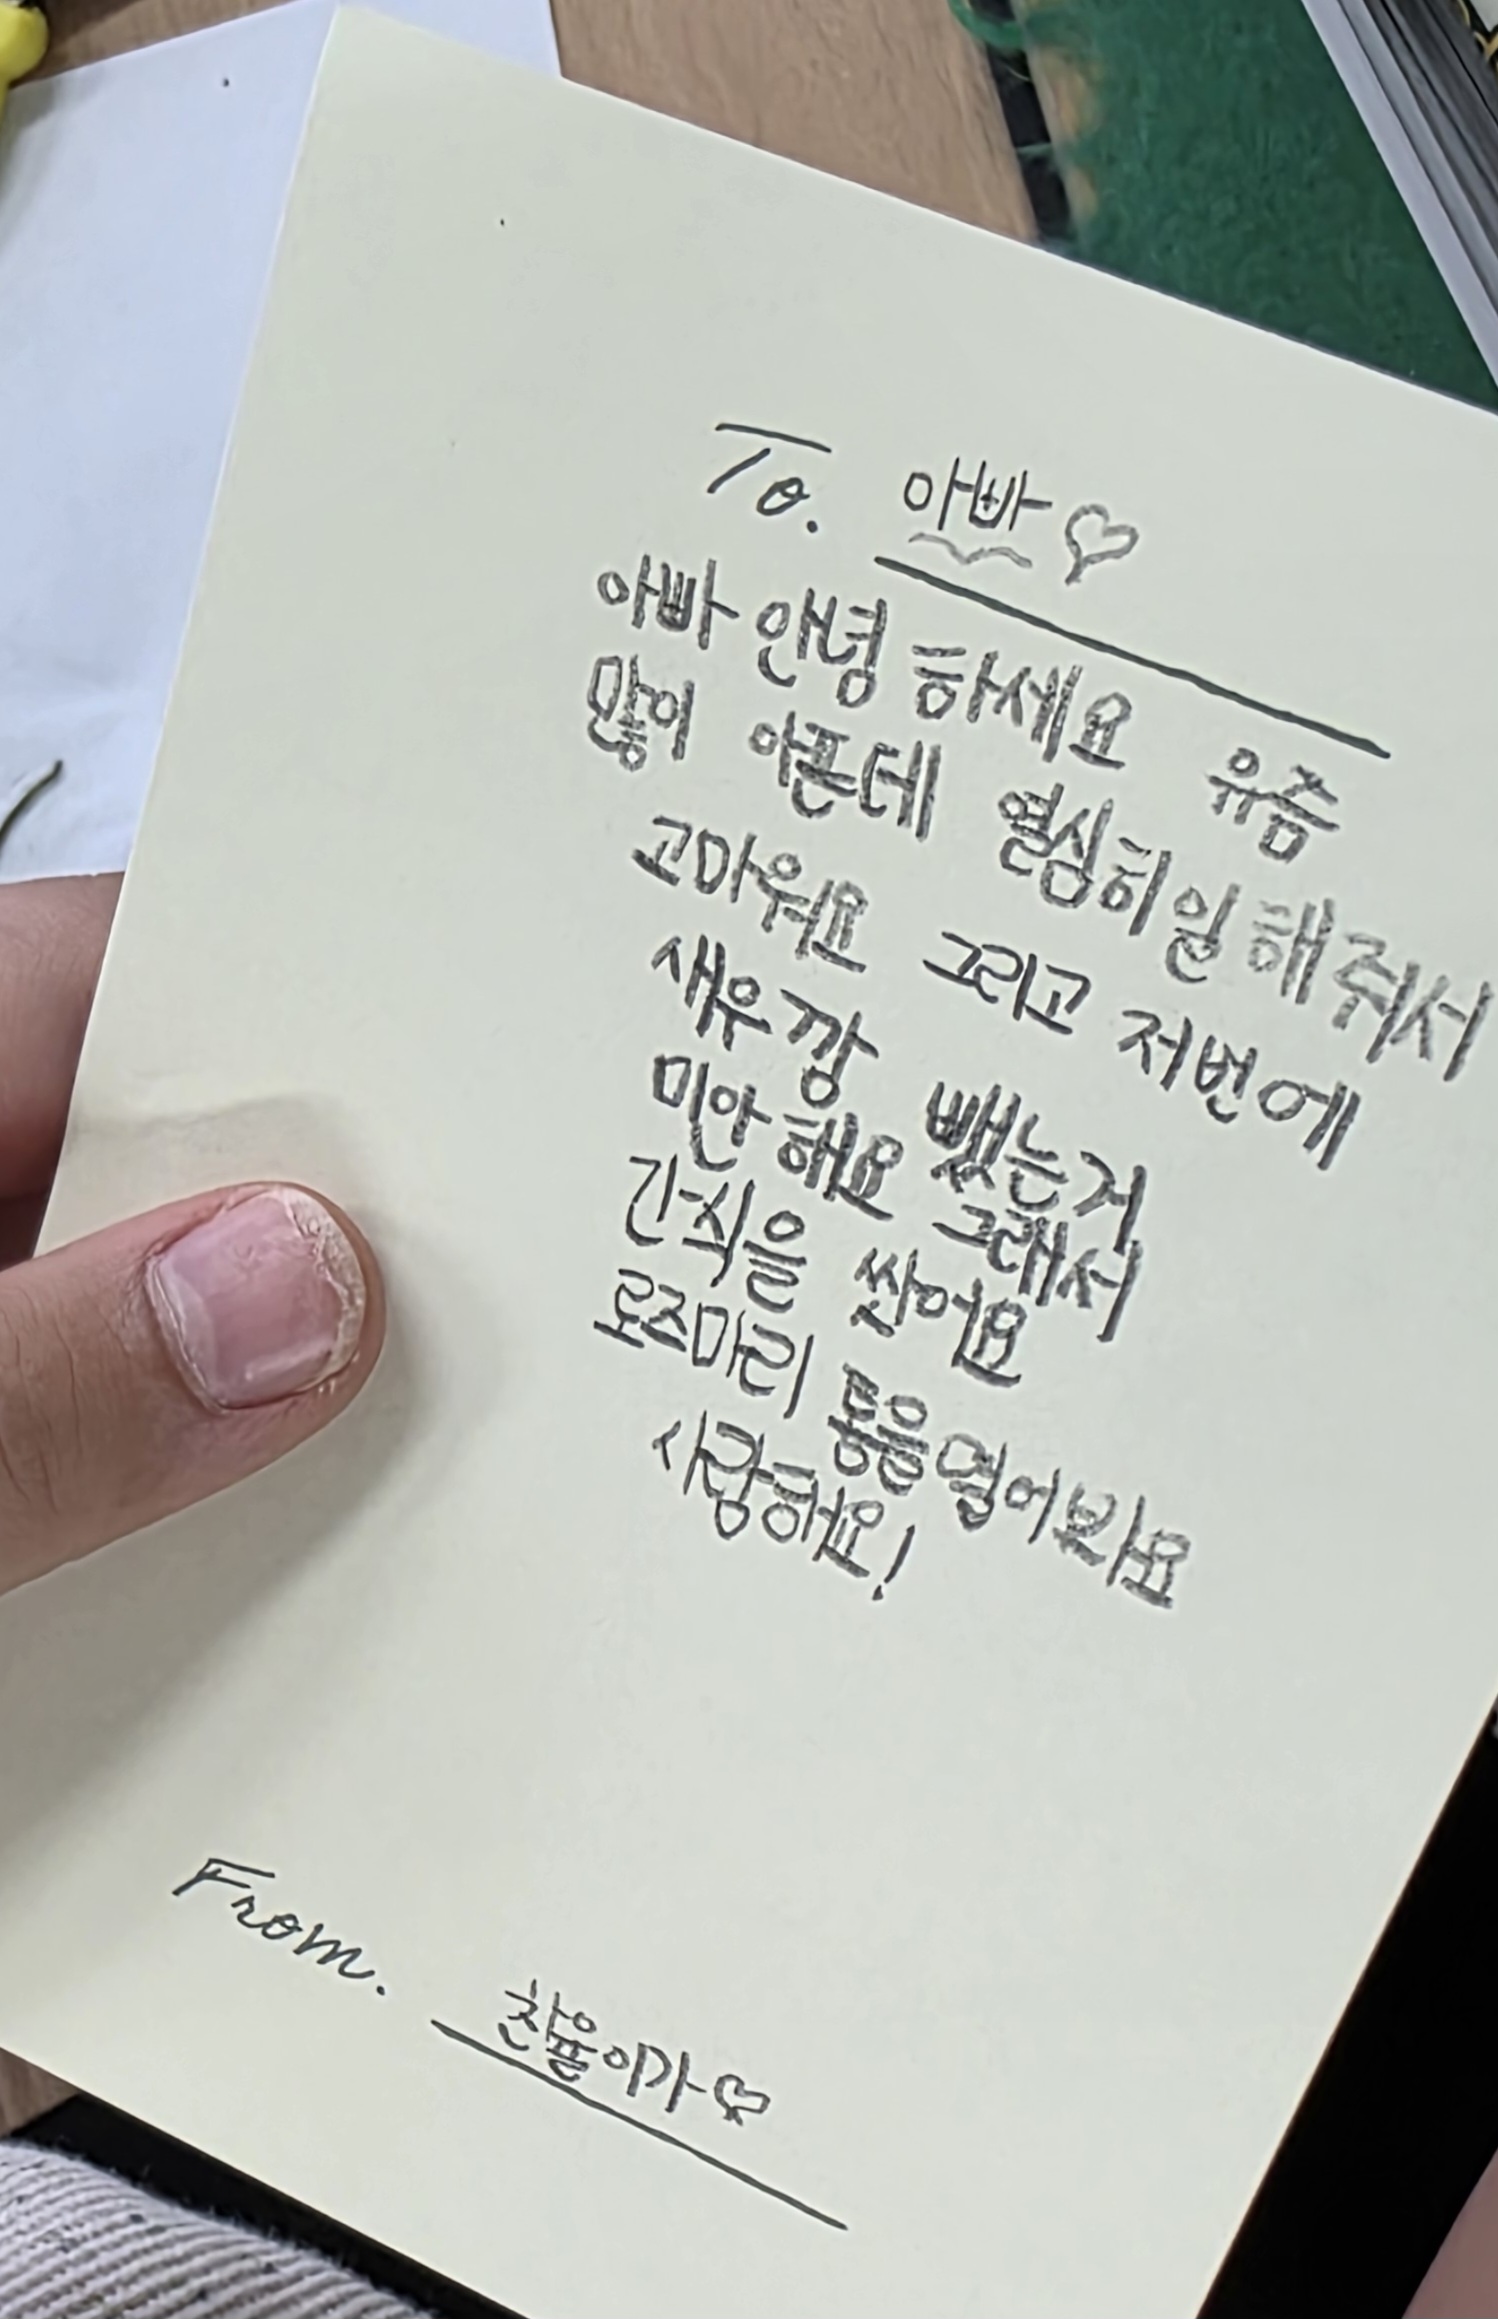 To. 아빠♡
아빠 안녕 하세요 유즘
많이 아픈데 열심히 일 해줘서
고마워요 그리고 저번에
새우깡 뺐는거
미안해요 그래서
간식을 싼어요
로즈마리 통을 열어보라요
사랑해요!
From. 찬율이가♡